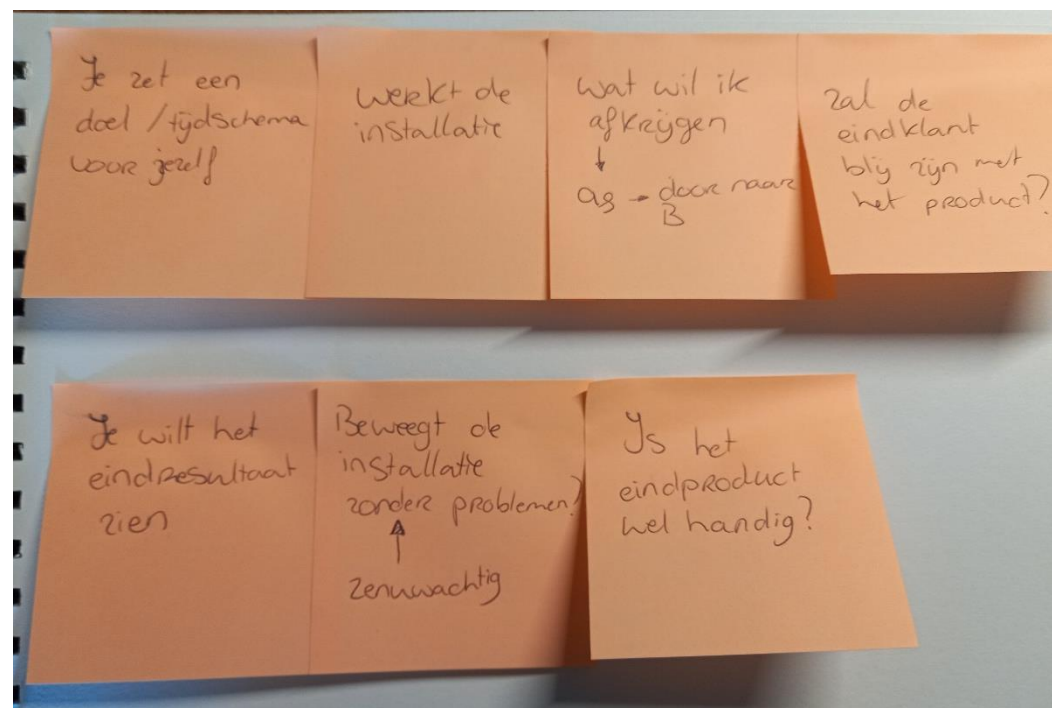 Je zet een
doel / tijdschema
voor jezelf
werkt de
installatie
wat wil ik
afkrijgen
↓
as → door naar
B
zal de
eindklant
blij zijn met
het product?
Je wilt het
eindresultaat
zien
Beweegt de
installatie
zonder problemen?
↑
zenuwachtig
Is het
eindproduct
wel handig?